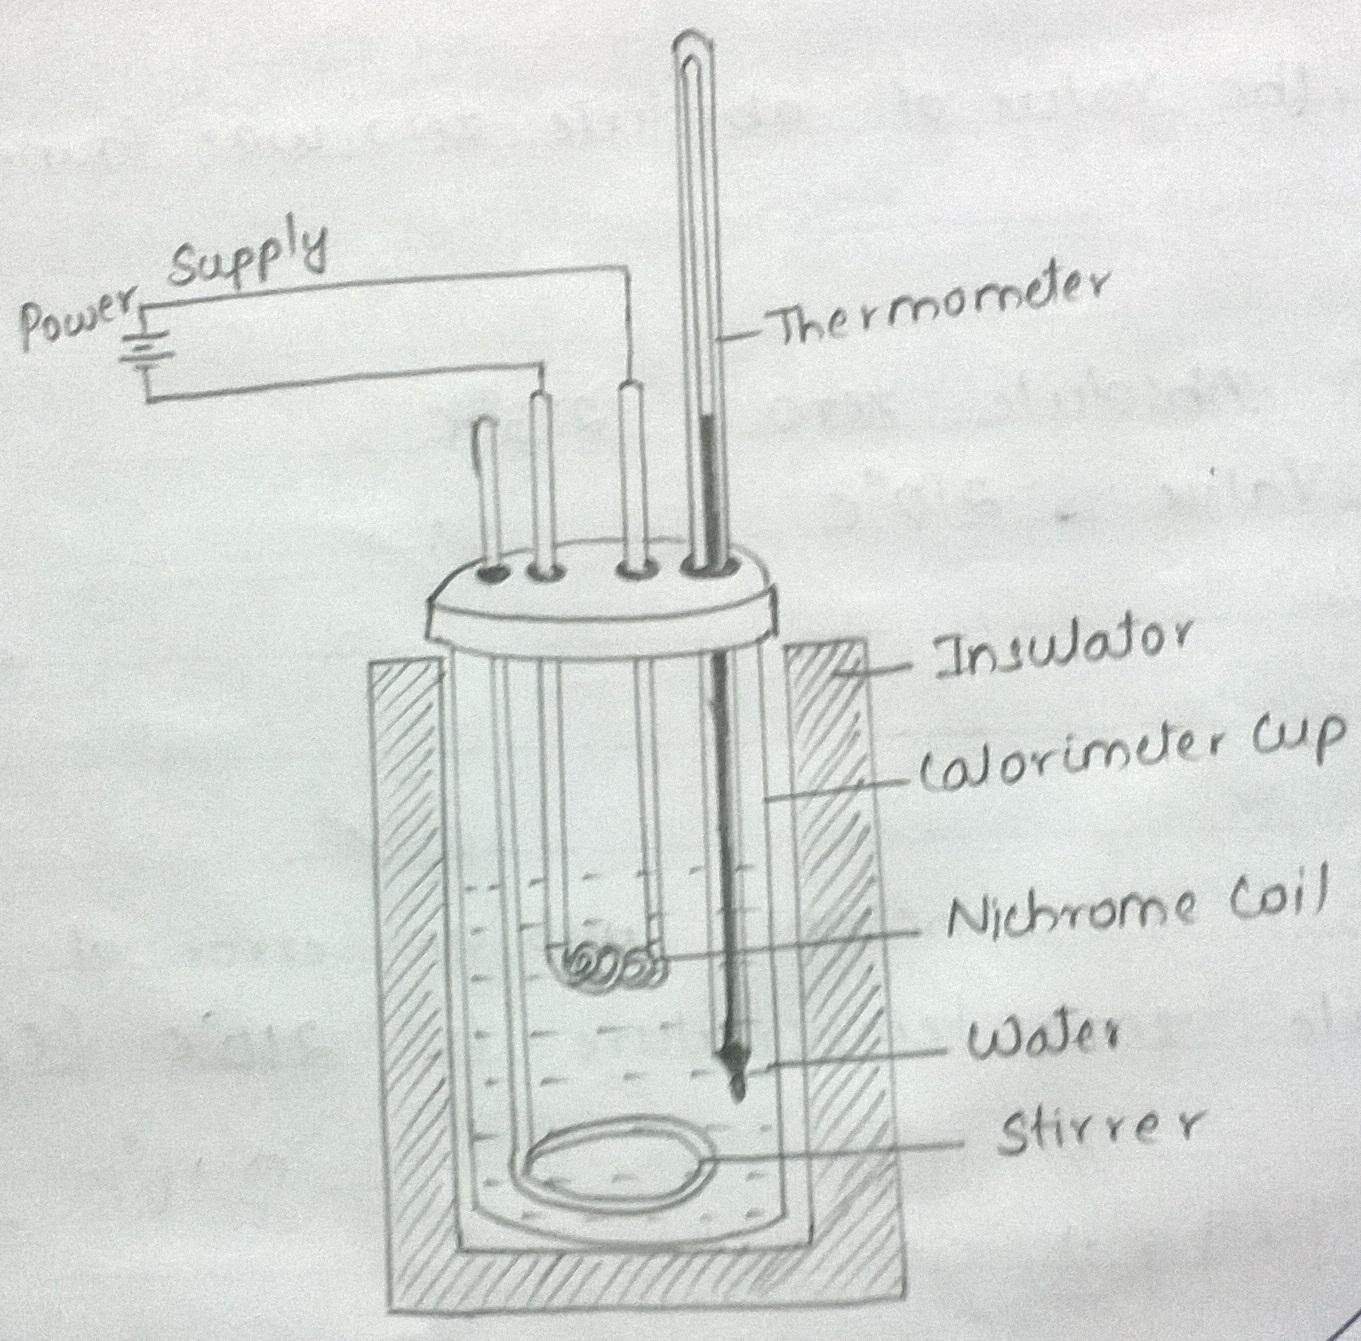 Supply
Power
Thermometer
Insulator
Calorimeter Cup
Nichrome Coil
Water
Stirrer